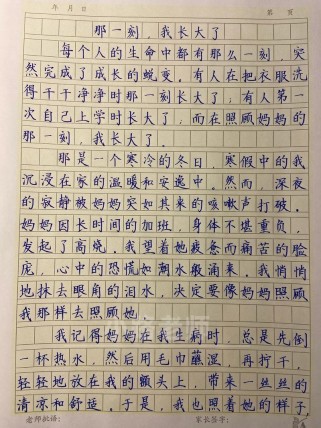 年 月 日 第 页
那一刻，我长大了
每个人的生命中都有那么一刻，突
然完成了成长的蜕变。有人在把衣服洗
得干干净净时那一刻长大了，有人第一
次自己上学时长大了，而在照顾妈妈的
那一刻，我长大了。
那是一个寒冷的冬日，寒假中的我
沉浸在家的温暖和安逸中。然而，深夜
的寂静被妈妈突如其来的咳嗽声打破。
妈妈因长时间的加班，身体不堪重负，
发起了高烧。我望着她疲惫而痛苦的脸
庞，心中的恐慌如潮水般涌来。我悄悄
地抹去眼角的泪水，决定要像妈妈照顾
我那样去照顾她。
我记得妈妈在我生病时，总是先倒
一杯热水，然后用毛巾蘸湿，再拧干，
轻轻地放在我的额头上，带来一丝丝的
清凉和舒适。于是，我也照着她的样子
老师批语： 家长签字：